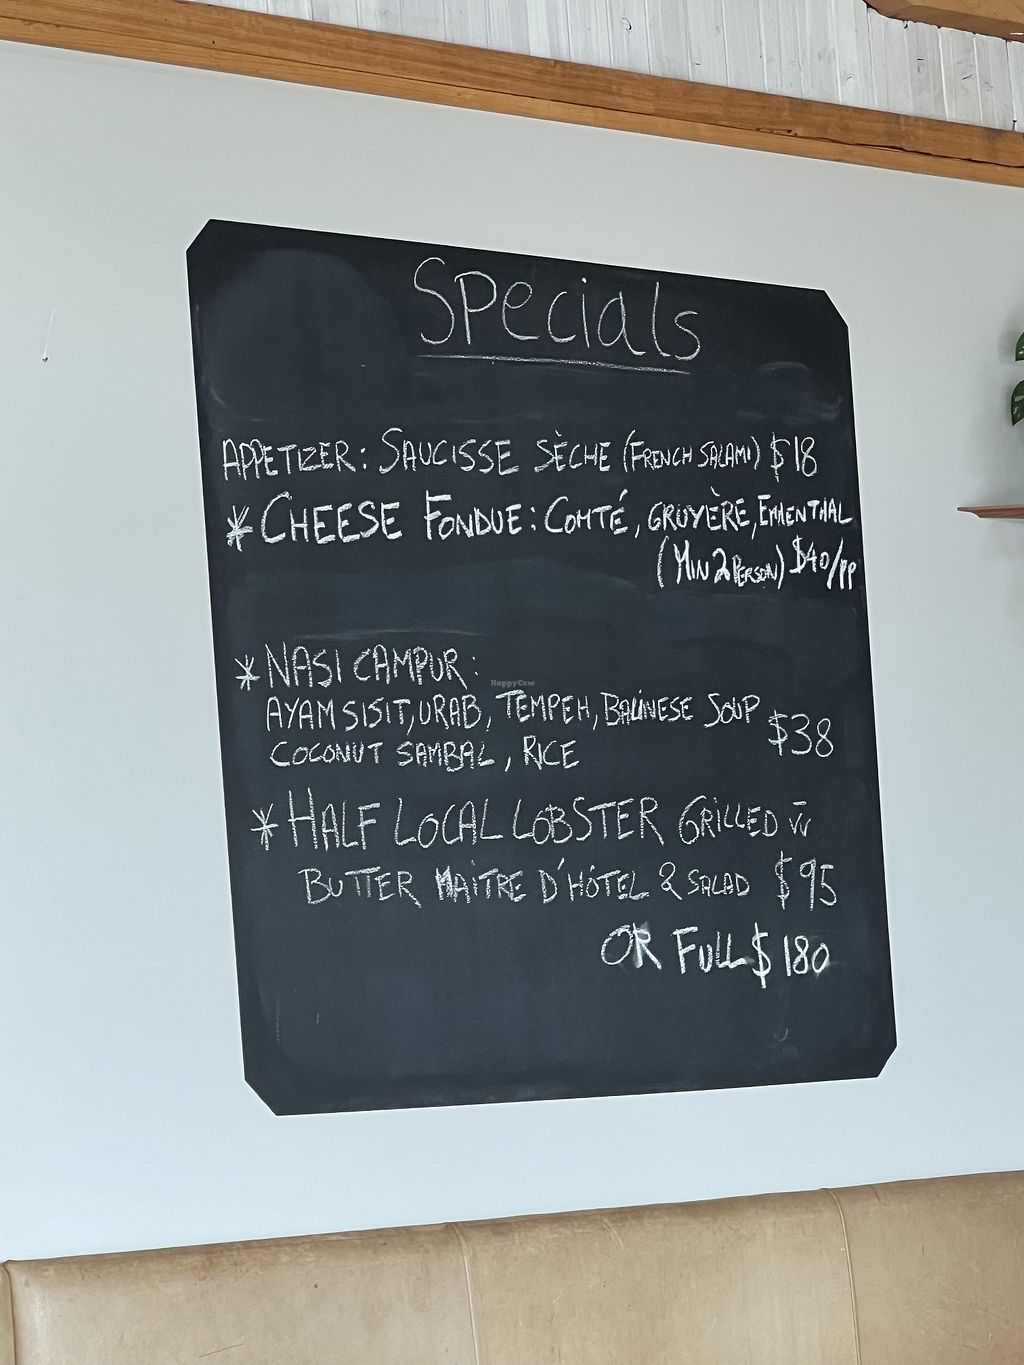 Specials
APPETIZER: SAUCISSE SÈCHE (FRENCH SALAMI) $18
* CHEESE FONDUE: COMTÉ, GRUYÈRE, EMMENTHAL
(MIN 2 PERSON) $40/PP
* NASI CAMPUR:
AYAM SISIT, URAB, TEMPEH, BALINESE SOUP
$38
COCONUT SAMBAL, RICE
* HALF LOCAL LOBSTER GRILLED w̄
BUTTER MAITRE D'HÔTEL & SALAD $95
OR FULL $180
HappyCow